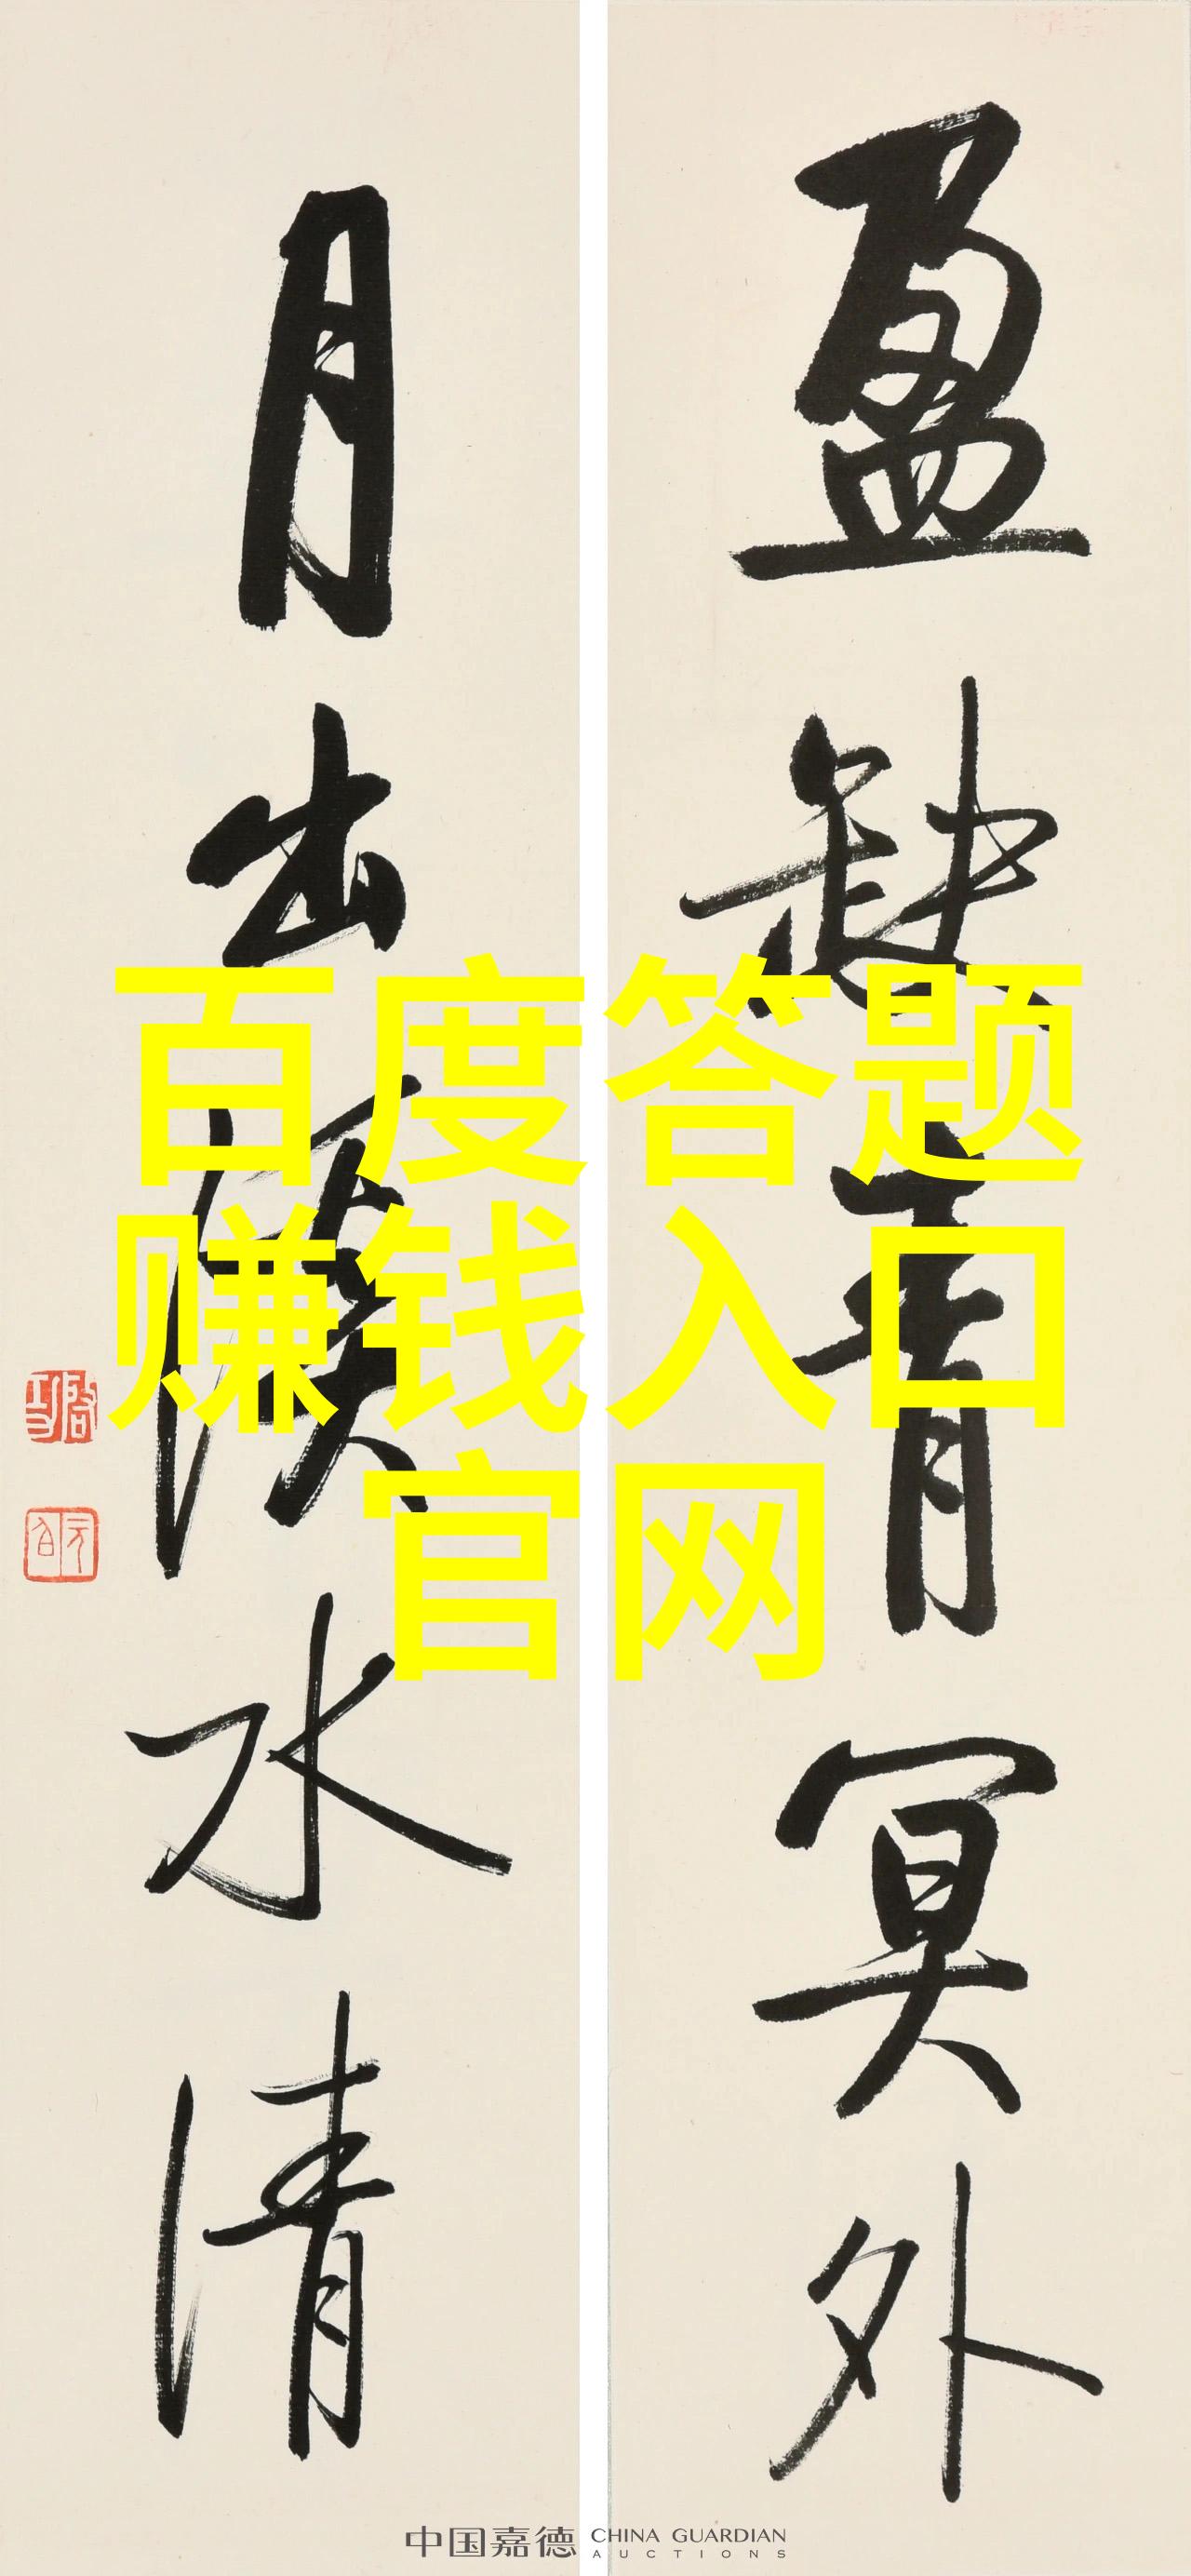 盈缺青冥外
月出溪水清
启功
元白
百度答题
赚钱入口
官网
中国嘉德 CHINA GUARDIAN
AUCTIONS